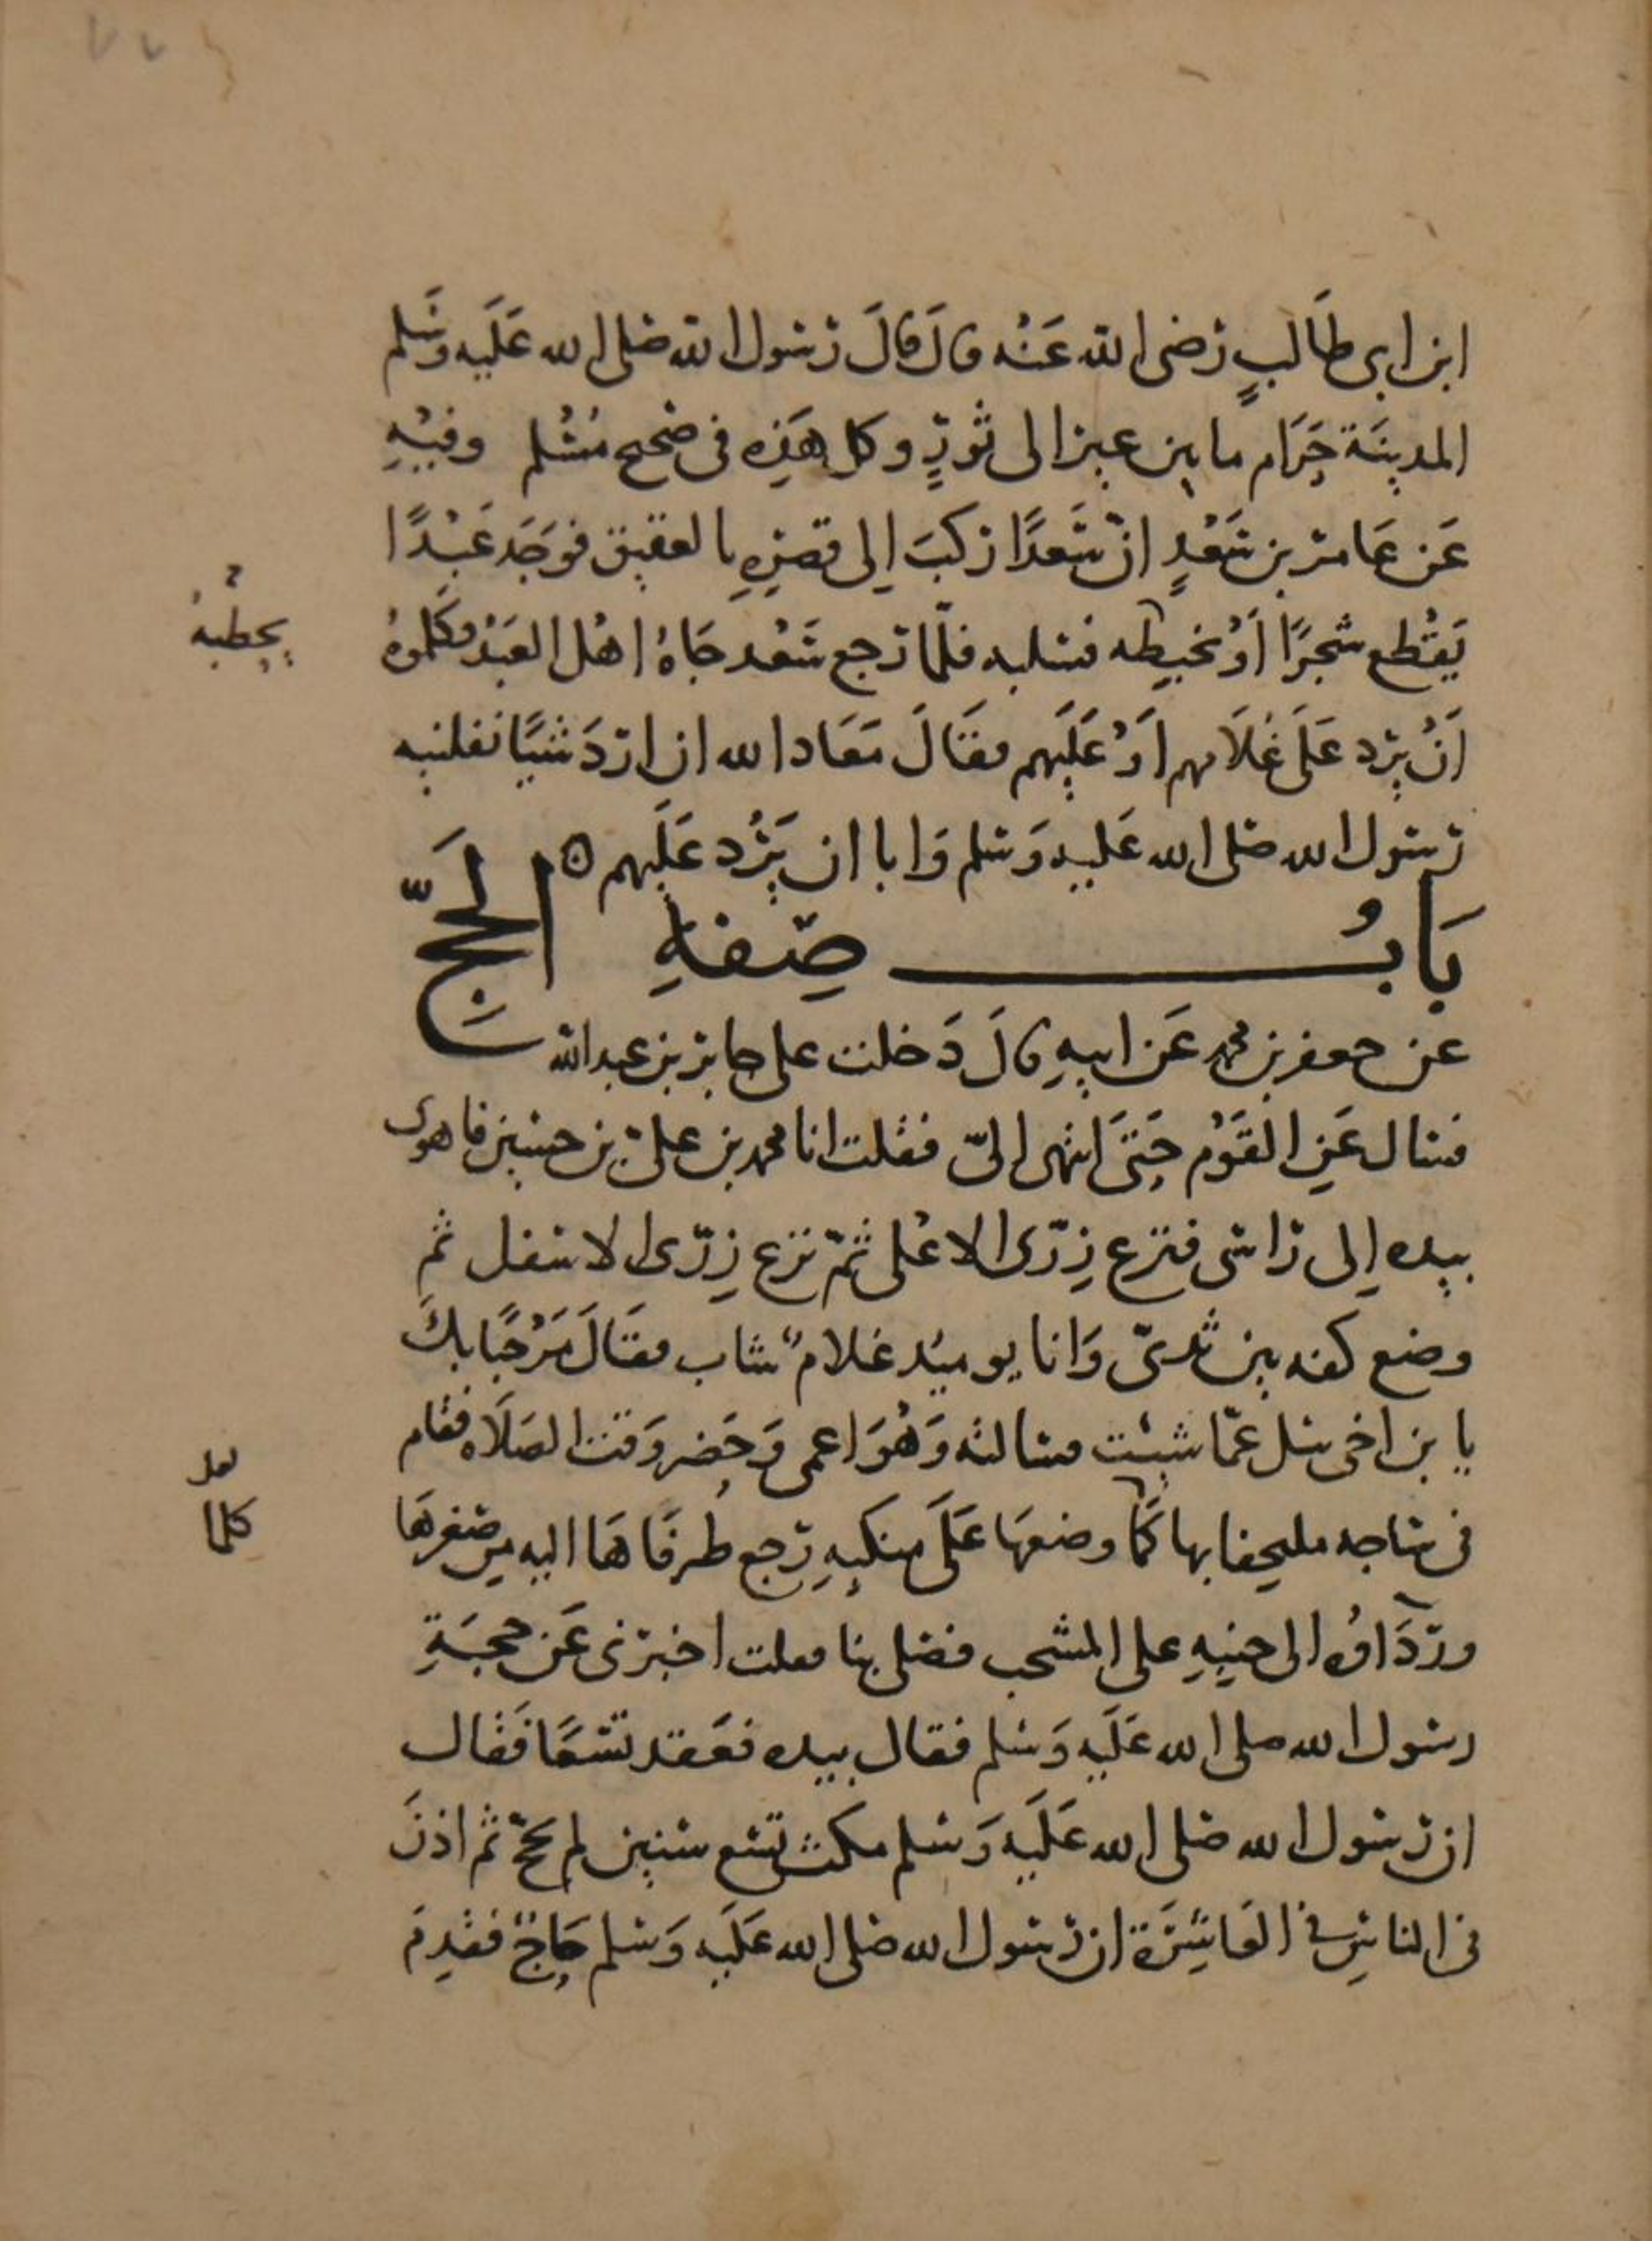 ابن ابى طَالبٍ رَضى الله عَنْه قال قالَ رَسول الله صَلى الله عَلَيه وَسَلم
المدينَة حَرَام ما بين عير الى ثورٍ وكل هَذِه فى صَحيح مُسْلم وفيْهِ
عَن عَامر بن سَعْدٍ انّ سَعدًا ركبَ اِلى قصرِهِ بالعقيق فوجَدَ عَبْدًا
يَقْطع شجرًا اَوْ يخبطه فسَلبه فلمّا رَجع سَعْد جَاهُ اهْل العَبْد فكَلموهُ
اَنْ يرد عَلَى غلَامهم اَوْ عَلَيهم فقَالَ مَعَاد الله ان اردَ شيًا نفلنيه
رَسول الله صَلى الله عَليه وَسَلم وَابا ان يَرُد عَلَيهم ه
بَابُ صِفةِ الحَجّ
عن جعفر بن محمد عَن ابيهِ قالَ دَخلت على جابر بن عبد الله
فسال عَنِ القَوْم حَتىَ انتهى الىّ فقلت انا محمد بن علىّ بن حسين فاهوى
بيده اِلى رَاسى فنزع زِرّى الاعْلى ثمّ نزع زِرّى الاسفل ثم
وضع كفه بين ثديىّ وَانا يومئد غلامٌ شاب فقَالَ مَرْحَبًا بكَ
يا بن اخى سَل عمّا شئت فسَالته وَهُوَ اعمى وَحَضر وَقت الصَلَاه فقام
فى سَاجه ملتحفا بها كمَا وضعهَا عَلَى منكبهِ رَجع طرفَاهَا اليه من صغرهَا
وردَاوُه الى جنبهِ على المشجب فصَلى بنا فقلت اخبرنى عَن حجَةِ
رسول الله صلى الله عَلَيه وَسَلم فقال بيده فعَقد تسْعًا فَقال
ان رَسول الله صَلى الله عَلَيه وَسَلم مكث تسع سنين لم يحجّ ثم اذنَ
فى الناسِ فى العَاشِرَة ان رَسول الله صَلى الله عَلَيه وَسَلم حَاجٌّ فقدِمَ
يحطبه
لعل
كلما